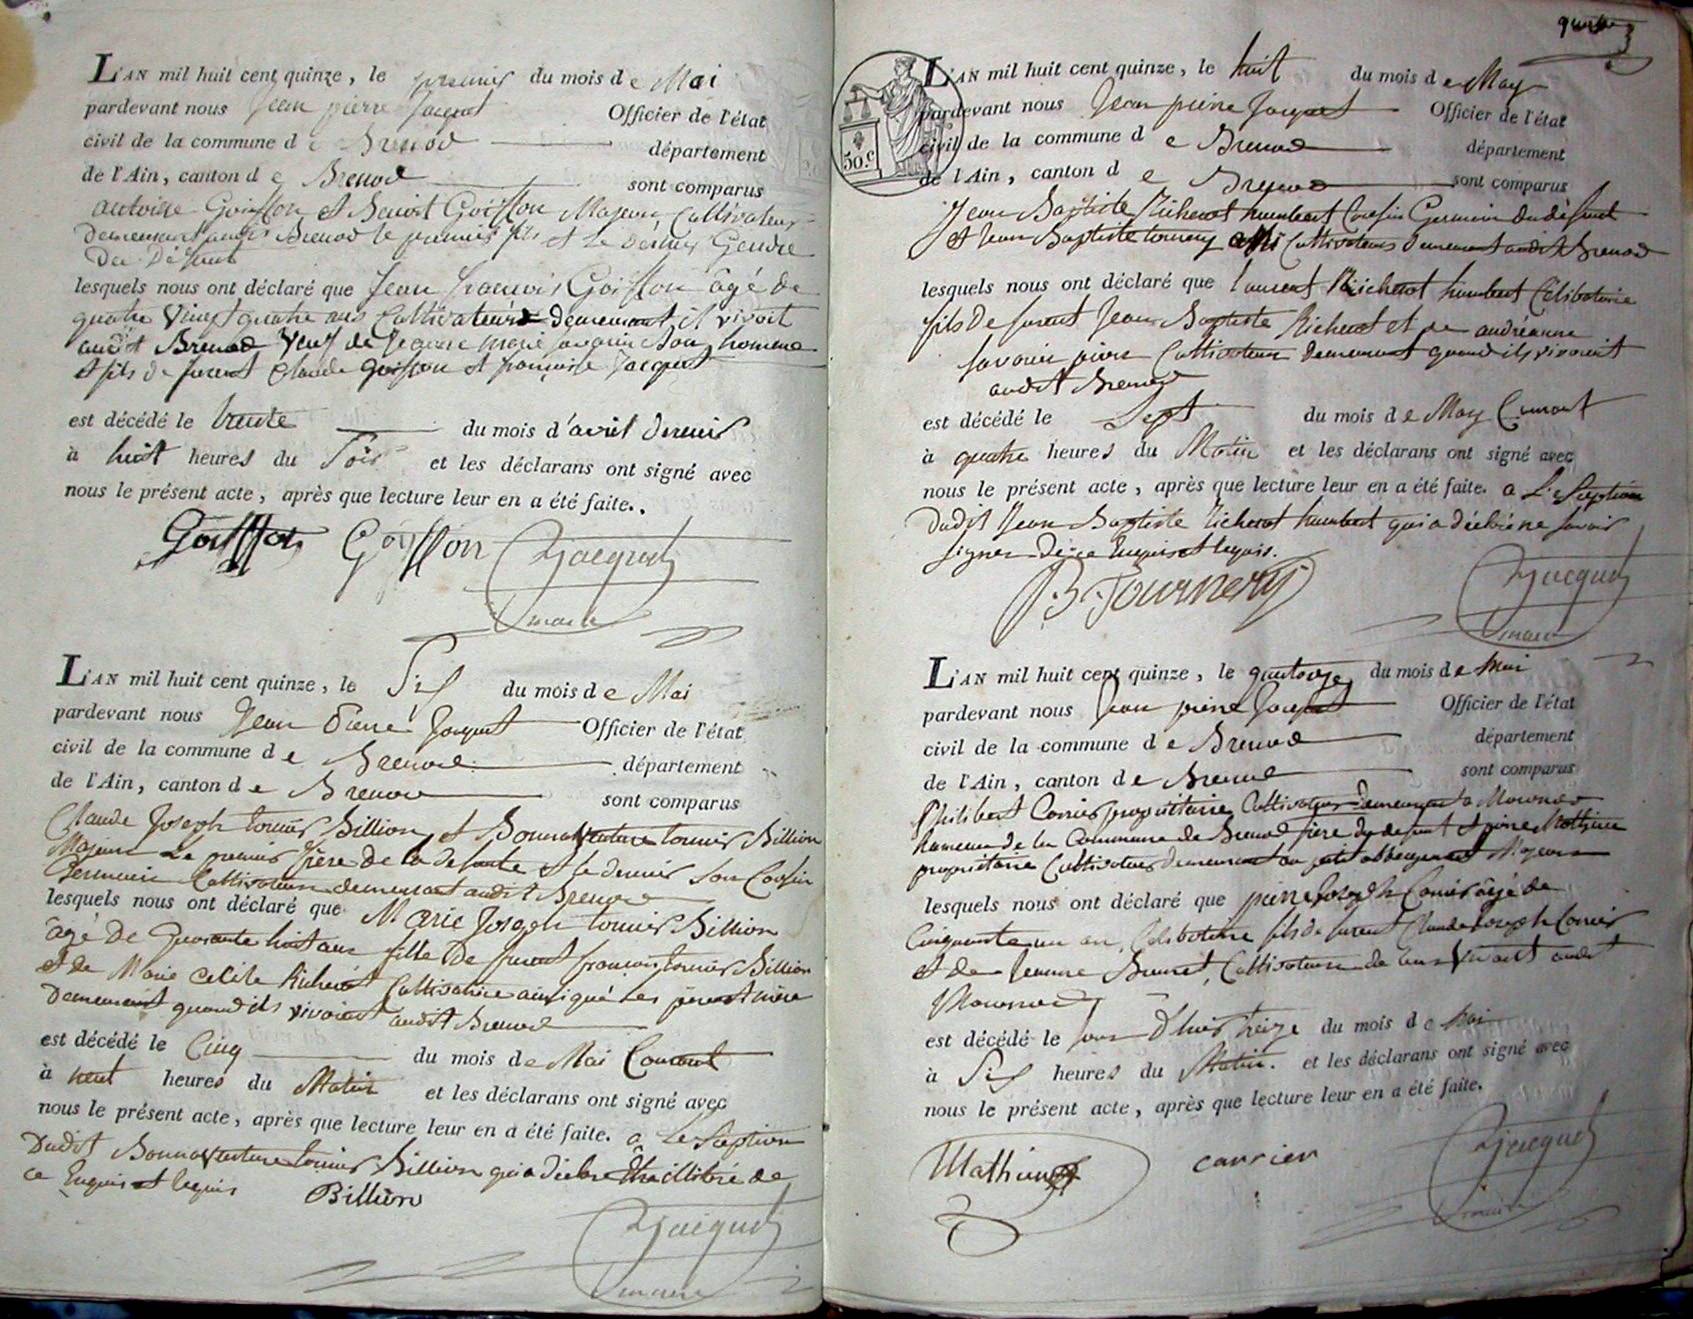 L'AN mil huit cent quinze, le premier du mois de Mai
pardevant nous Jean pierre Jacquet Officier de l'état
civil de la commune de Brenod département
de l'Ain, canton de Brenod sont comparus
antoine Goiffon et Benoit Goiffon Majeurs Cultivateurs
demeurant audit Brenod le premier fils et le dernier Gendre
du défunt
lesquels nous ont déclaré que Jean francois Goiffon âgé de
quatre vingt quatre ans Cultivateur demeurant il vivoit
audit Brenod Veuf de marie son homme
et fils de furent Claude Goiffon et françoise Jacquet
est décédé le trente du mois d'avril dernier
à huit heures du Soir et les déclarans ont signé avec
nous le présent acte, après que lecture leur en a été faite.
Goiffon Goiffon Jacquet
maire
L'AN mil huit cent quinze, le Six du mois de Mai
pardevant nous Jean Pierre Jacquet Officier de l'état
civil de la commune de Brenod département
de l'Ain, canton de Brenod sont comparus
Claude Joseph tornier Billion et Bonnaventure tornier Billion
Majeurs Le premier frère de la defunte et le dernier son Cousin
Germain Cultivateurs demeurant audit Brenod
lesquels nous ont déclaré que Marie Joseph tornier Billion
âgé de Quarante huit ans fille de furent francois tornier Billion
et de Marie Cecile Richerot Cultivatrice ainsi que ses père et mère
demeurant quand ils vivoient audit Brenod
est décédé le Cinq du mois de Mai Courant
à neuf heures du Matin et les déclarans ont signé avec
nous le présent acte, après que lecture leur en a été faite. a L'exception
dudit Bonnaventure tornier Billion qui a déclaré être illitéré de
ce Enquis et requis Billion
Jacquet
maire
50.c
L'AN mil huit cent quinze, le huit du mois de May
pardevant nous Jean pierre Jacquet Officier de l'état
civil de la commune de Brenod département
de l'Ain, canton de Brenod sont comparus
Jean Baptiste Richerot humbert Cousin Germain du défunt
et Jean Baptiste tournery Cultivateurs demeurant audit Brenod
lesquels nous ont déclaré que laurent Richerot humbert Célibataire
fils de furent Jean Baptiste Richerot et de andréanne
Savarin Cultivateurs demeurant quand ils vivoient
audit Brenod
est décédé le Sept du mois de May Courant
à quatre heures du Matin et les déclarans ont signé avec
nous le présent acte, après que lecture leur en a été faite. a L'exception
dudit Jean Baptiste Richerot humbert qui a déclaré ne savoir
signer de ce Enquis et requis.
JB Tournery Jacquet
maire
L'AN mil huit cent quinze, le quatorze du mois de mai
pardevant nous Jean pierre Jacquet Officier de l'état
civil de la commune de Brenod département
de l'Ain, canton de Brenod sont comparus
Philibert Carrier propriétaire Cultivateur demeurant a
hameau de la Commune de Brenod frère du defunt et pierre Mathieu
propriétaire Cultivateur demeurant au petit abbergement Majeurs
lesquels nous ont déclaré que pierre Joseph Carrier âgé de
Cinquante un an, Célibataire fils de furent Claude Joseph Carrier
et de Jeanne Brunet, Cultivateurs de leur Vivant audit
est décédé le jour d'hier treize du mois de Mai
à Six heures du Matin. et les déclarans ont signé avec
nous le présent acte, après que lecture leur en a été faite.
Mathieu carrier Jacquet
maire